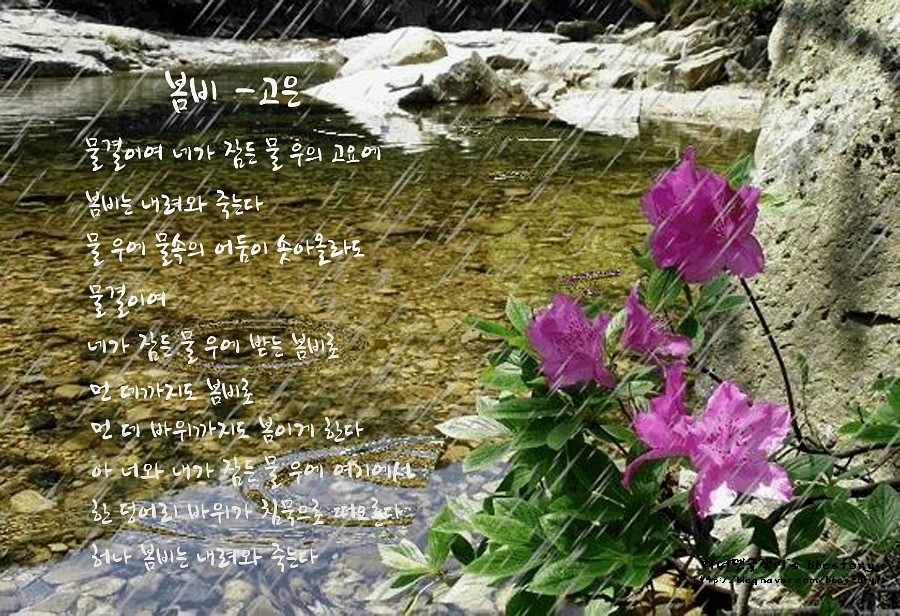 봄비 -고은
물결이여 네가 잠든 물 우의 고요에
봄비는 내려와 죽는다
물 우에 물속의 어둠이 솟아올라도
물결이여
네가 잠든 물 우에 받는 봄비로
먼 데까지도 봄비로
먼 데 바위까지도 봄이게 한다
아 너와 내가 잠든 물 우에 여기에서
한 덩어리 바위가 침묵으로 떠오른다
허나 봄비는 내려와 죽는다
bbcstory
http://blog.naver.com/bbcstory